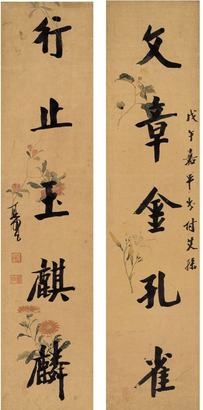 文章金孔雀
戊午嘉平書付芝孫
行止玉麒麟